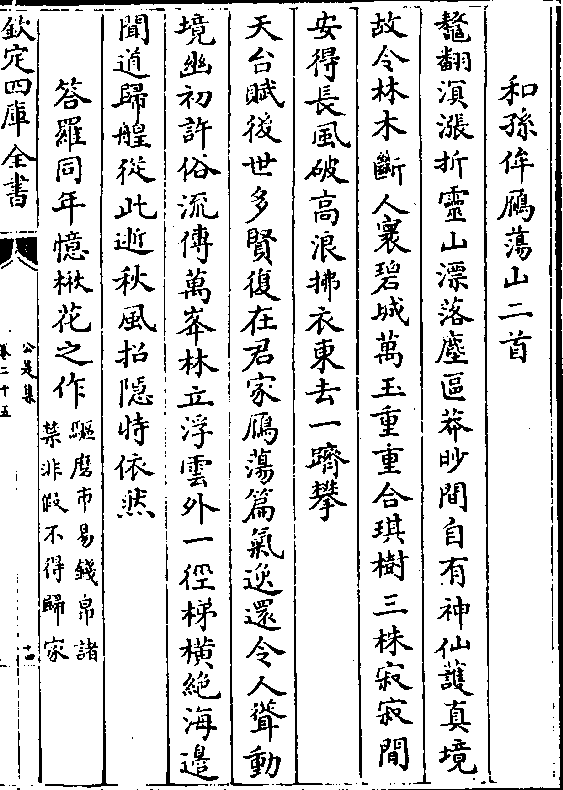 和孫侔鴈蕩山二首
鼇翻溟漲折靈山漂落塵區莽眇間自有神仙護真境
故令林木斷人寰碧城萬玉重重合琪樹三株寂寂閒
安得長風破高浪拂衣東去一躋攀
天台賦後世多賢復在君家鴈蕩篇氣逸還令人聳動
境幽初許俗流傳萬峯林立浮雲外一徑梯橫絶海邊
聞道歸艎從此逝秋風招隱恃依然
答羅同年憶楸花之作
驅磨市易錢帛諸
禁非假不得歸家
欽定四庫全書
公是集
卷二十五